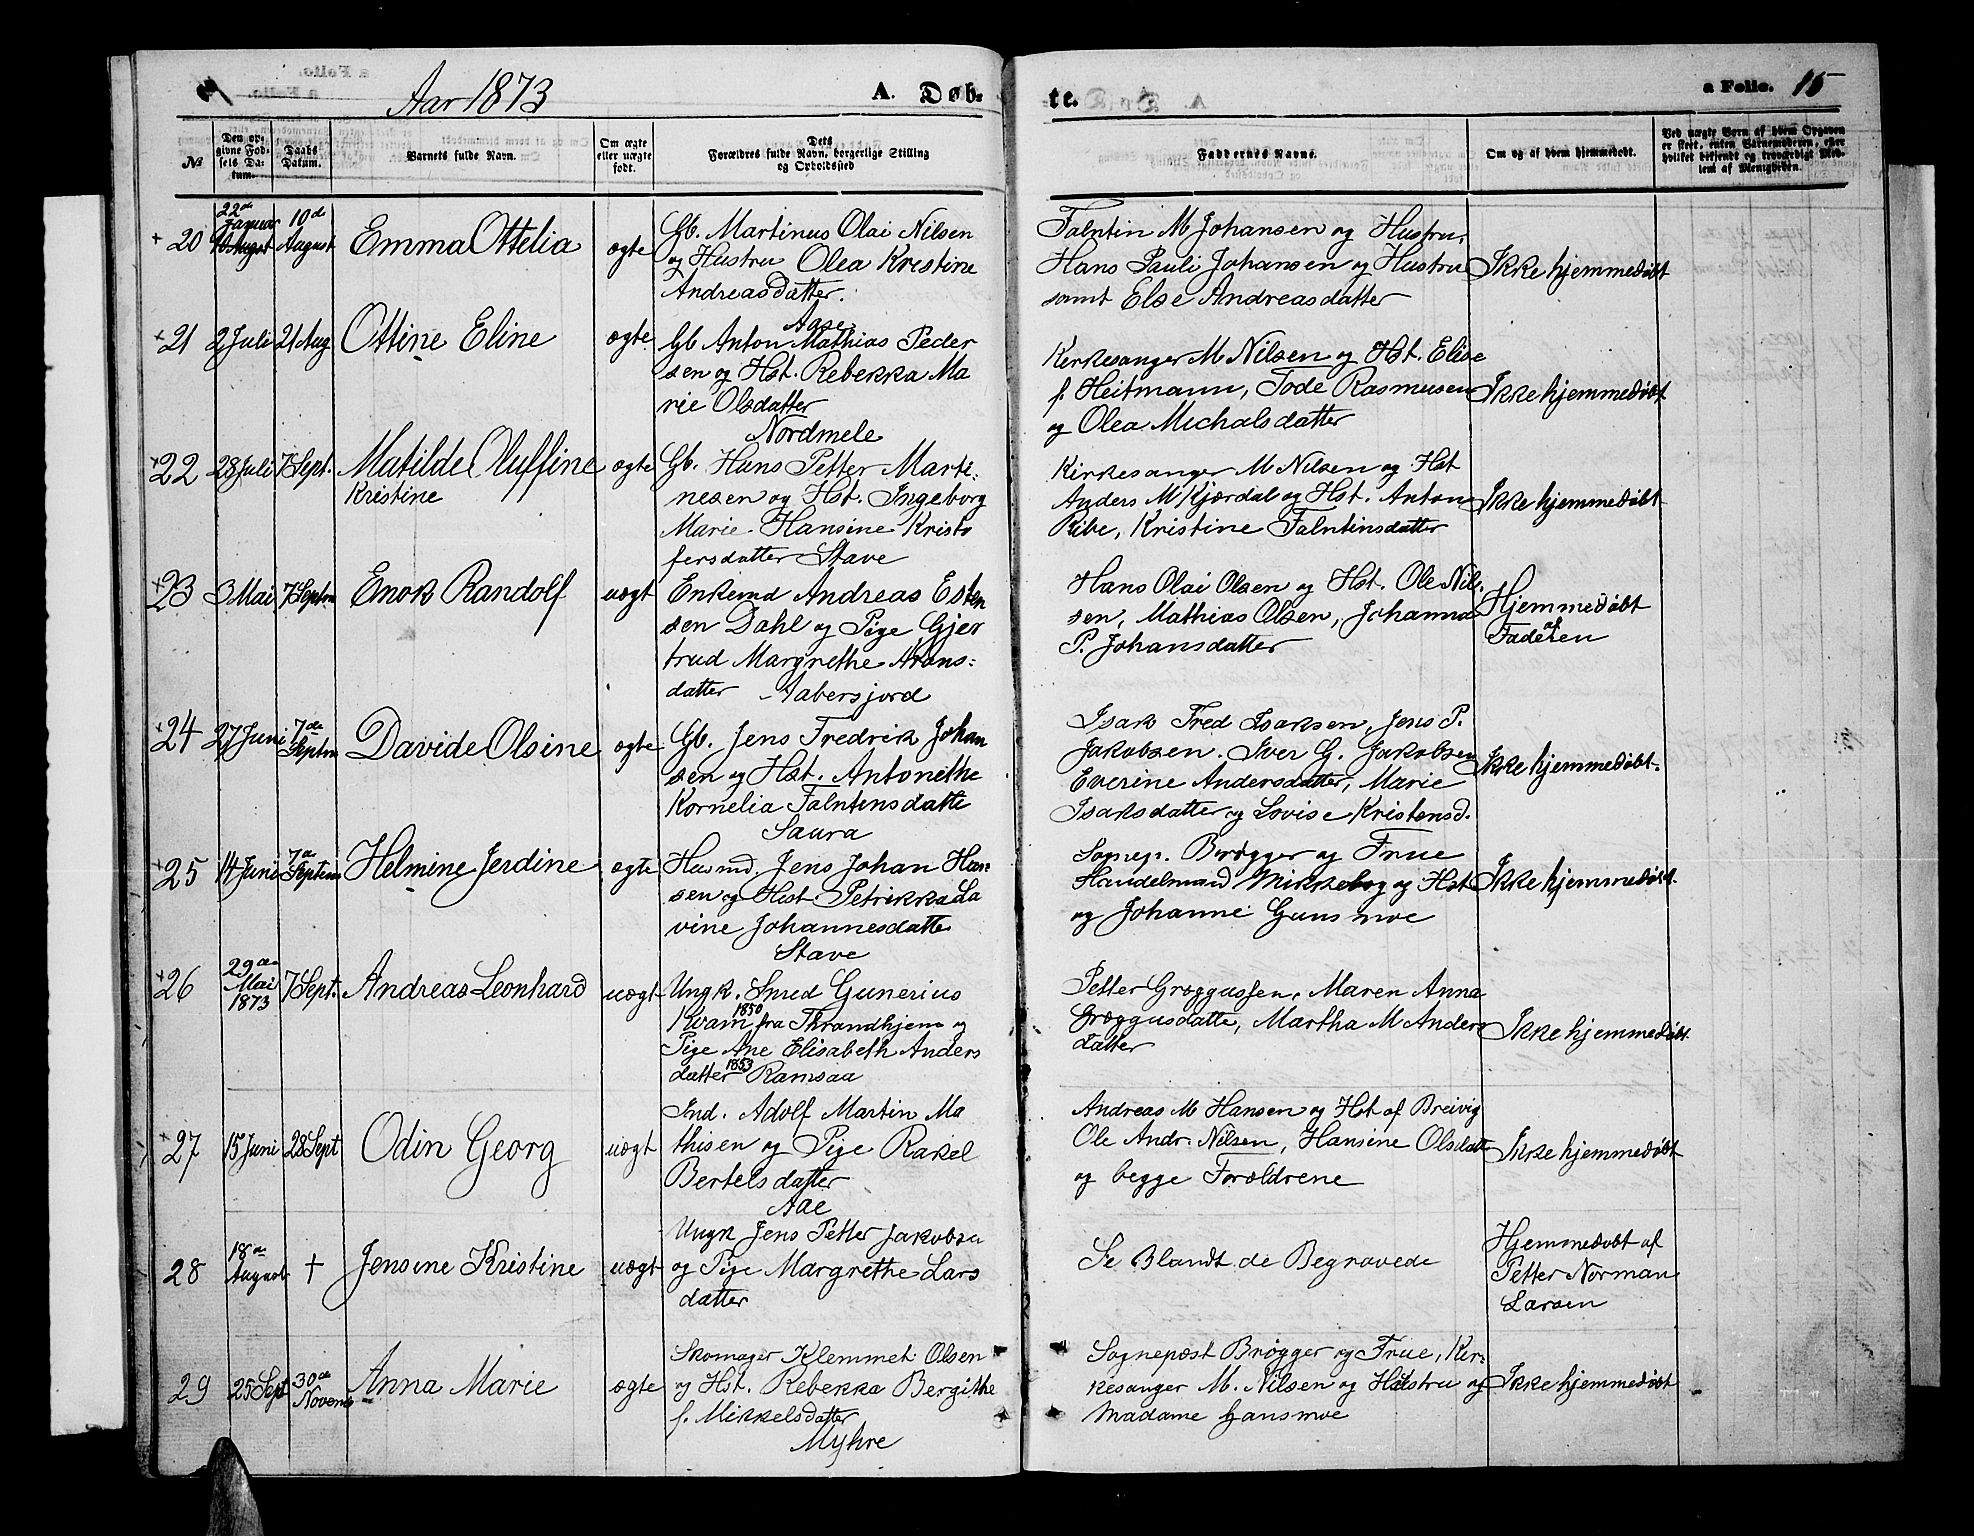 Aar 1873
A. Døb-
te.
a Folio. 15
№
Den op-
givne Fød-
sels Da-
tum.
Daabs
Datum.
Barnets fulde Navn.
Om ægte
eller uægte
født.
Dets
Forældres fulde Navn, borgerlige Stilling
og Opholdssted
Faddernes Navne.
Om og af hvem hjemmedøbt.
Ved uægte Børn af hvem Opgaven
er skeet, enten Barnemoderen, eller
hvilket bekjendt og troværdigt Med-
lem af Menigheden.
+ 20
22de
Januar
10 August
10de
August
Emma Ottelia
ægte
Gb. Martinus Olai Nilsen
og Hustru Olea Kristine
Andreasdatter.
Aase
Falntin M Johansen og Hustru,
Hans Pauli Johansen og Hustru
samt Else Andreasdatter
Ikke hjemmedøbt
+21
2 Juli
21 Aug
Ottine Eline
ægte
Gb Anton Mathias Peder
sen og Hst. Rebekka Ma
rie Olsdatter
Nordmele
Kirkesanger M Nilsen og Hst. Elise
f. Heitmann, Tode Rasmusen
og Olea Michalsdatter
Ikke hjemmedøbt
+22
28 Juli
7 Sept.
Matilde Oluffine
Kristine
ægte
Gb. Hans Petter Marti-
nesen og Hst. Ingeborg
Marie Hansine Kristo
fersdatter Stave
Kirkesanger M Nilsen og Hst
Anders M Kjærdal og Hst. Anton
Ribe, Kristine Falntinsdatter
Ikke hjemmedøbt
+23
3 Mai
7 Septm
Enok Randolf
uægt
Enkemd Andreas Esten
sen Dahl og Pige Gjer
trud Margrethe Arons-
datter Aabersjord
Hans Olai Olsen og Hst. Ole Nil-
sen, Mathias Olsen, Johanna
P. Johansdatter
Hjemmedøbt
af
Faderen
+24
27 Juni
7de
Septm
Davide Olsine
ægte
Gb. Jens Fredrik Johan
sen og Hst. Antonethe
Kornelia Falntensdatte
Saura
Isak Fred Isaksen, Jens P.
Jakobsen. Iver G. Jakobsen
Everine Andersdatter, Marie
Isaksdatter og Lovise Kristensd.
Ikke hjemmedøbt.
+25
14 Juni
7de
Septem
Helmine Jerdine
ægte
Husmd. Jens Johan Han-
sen og Hst. Petrikka La
vine Johannesdatte
Stave
Sognep. Brøgger og Frue
Handelmand Mikkelbog og Hst
og Johanne Gunsmoe
Ikke hjemmedøbt.
+26
29de
Mai
1873
7 Sept.
Andreas Leonhard
uægt
Ungk. Smed Gunerius
Kvam 1850 fra Thrandhjem og
Pige Ane Elisabeth Anders
datter 1853 Ramsaa
Petter Græggussen, Maren Anna
Græggusdatte, Martha M Anders
datter
Ikke hjemmedøbt.
+27
15 Juni
28 Sept
Odin Georg
uægt
Ind. Adolf Martin Ma
thisen og Pige Rakel
Bertelsdatter
Aae
Andreas M Hansen og Hst af Breivig
Ole Andr. Nilsen, Hansine Olsdatte
og begge Forældrene
Ikke hjemmedøbt
28
18de
August
†
Jensine Kristine
uægt
Ungk Jens Petter Jakobsen
og Pige Margrethe Lars
datter
Se Blandt de Begravede
Hjemmedøbt af
Petter Norman
Larsen
29
25 Sept
30de
Novemb
Anna Marie
ægte
Skomager Klemmet Olsen
og Hst. Rebekka Bergithe
f. Mikkelsdatter
Myhre
Sognepæst Brøgger og Frue, Kir-
kesanger M. Nilsen og Hustru og
Madame Hansmoe
Ikke hjemmedøbt